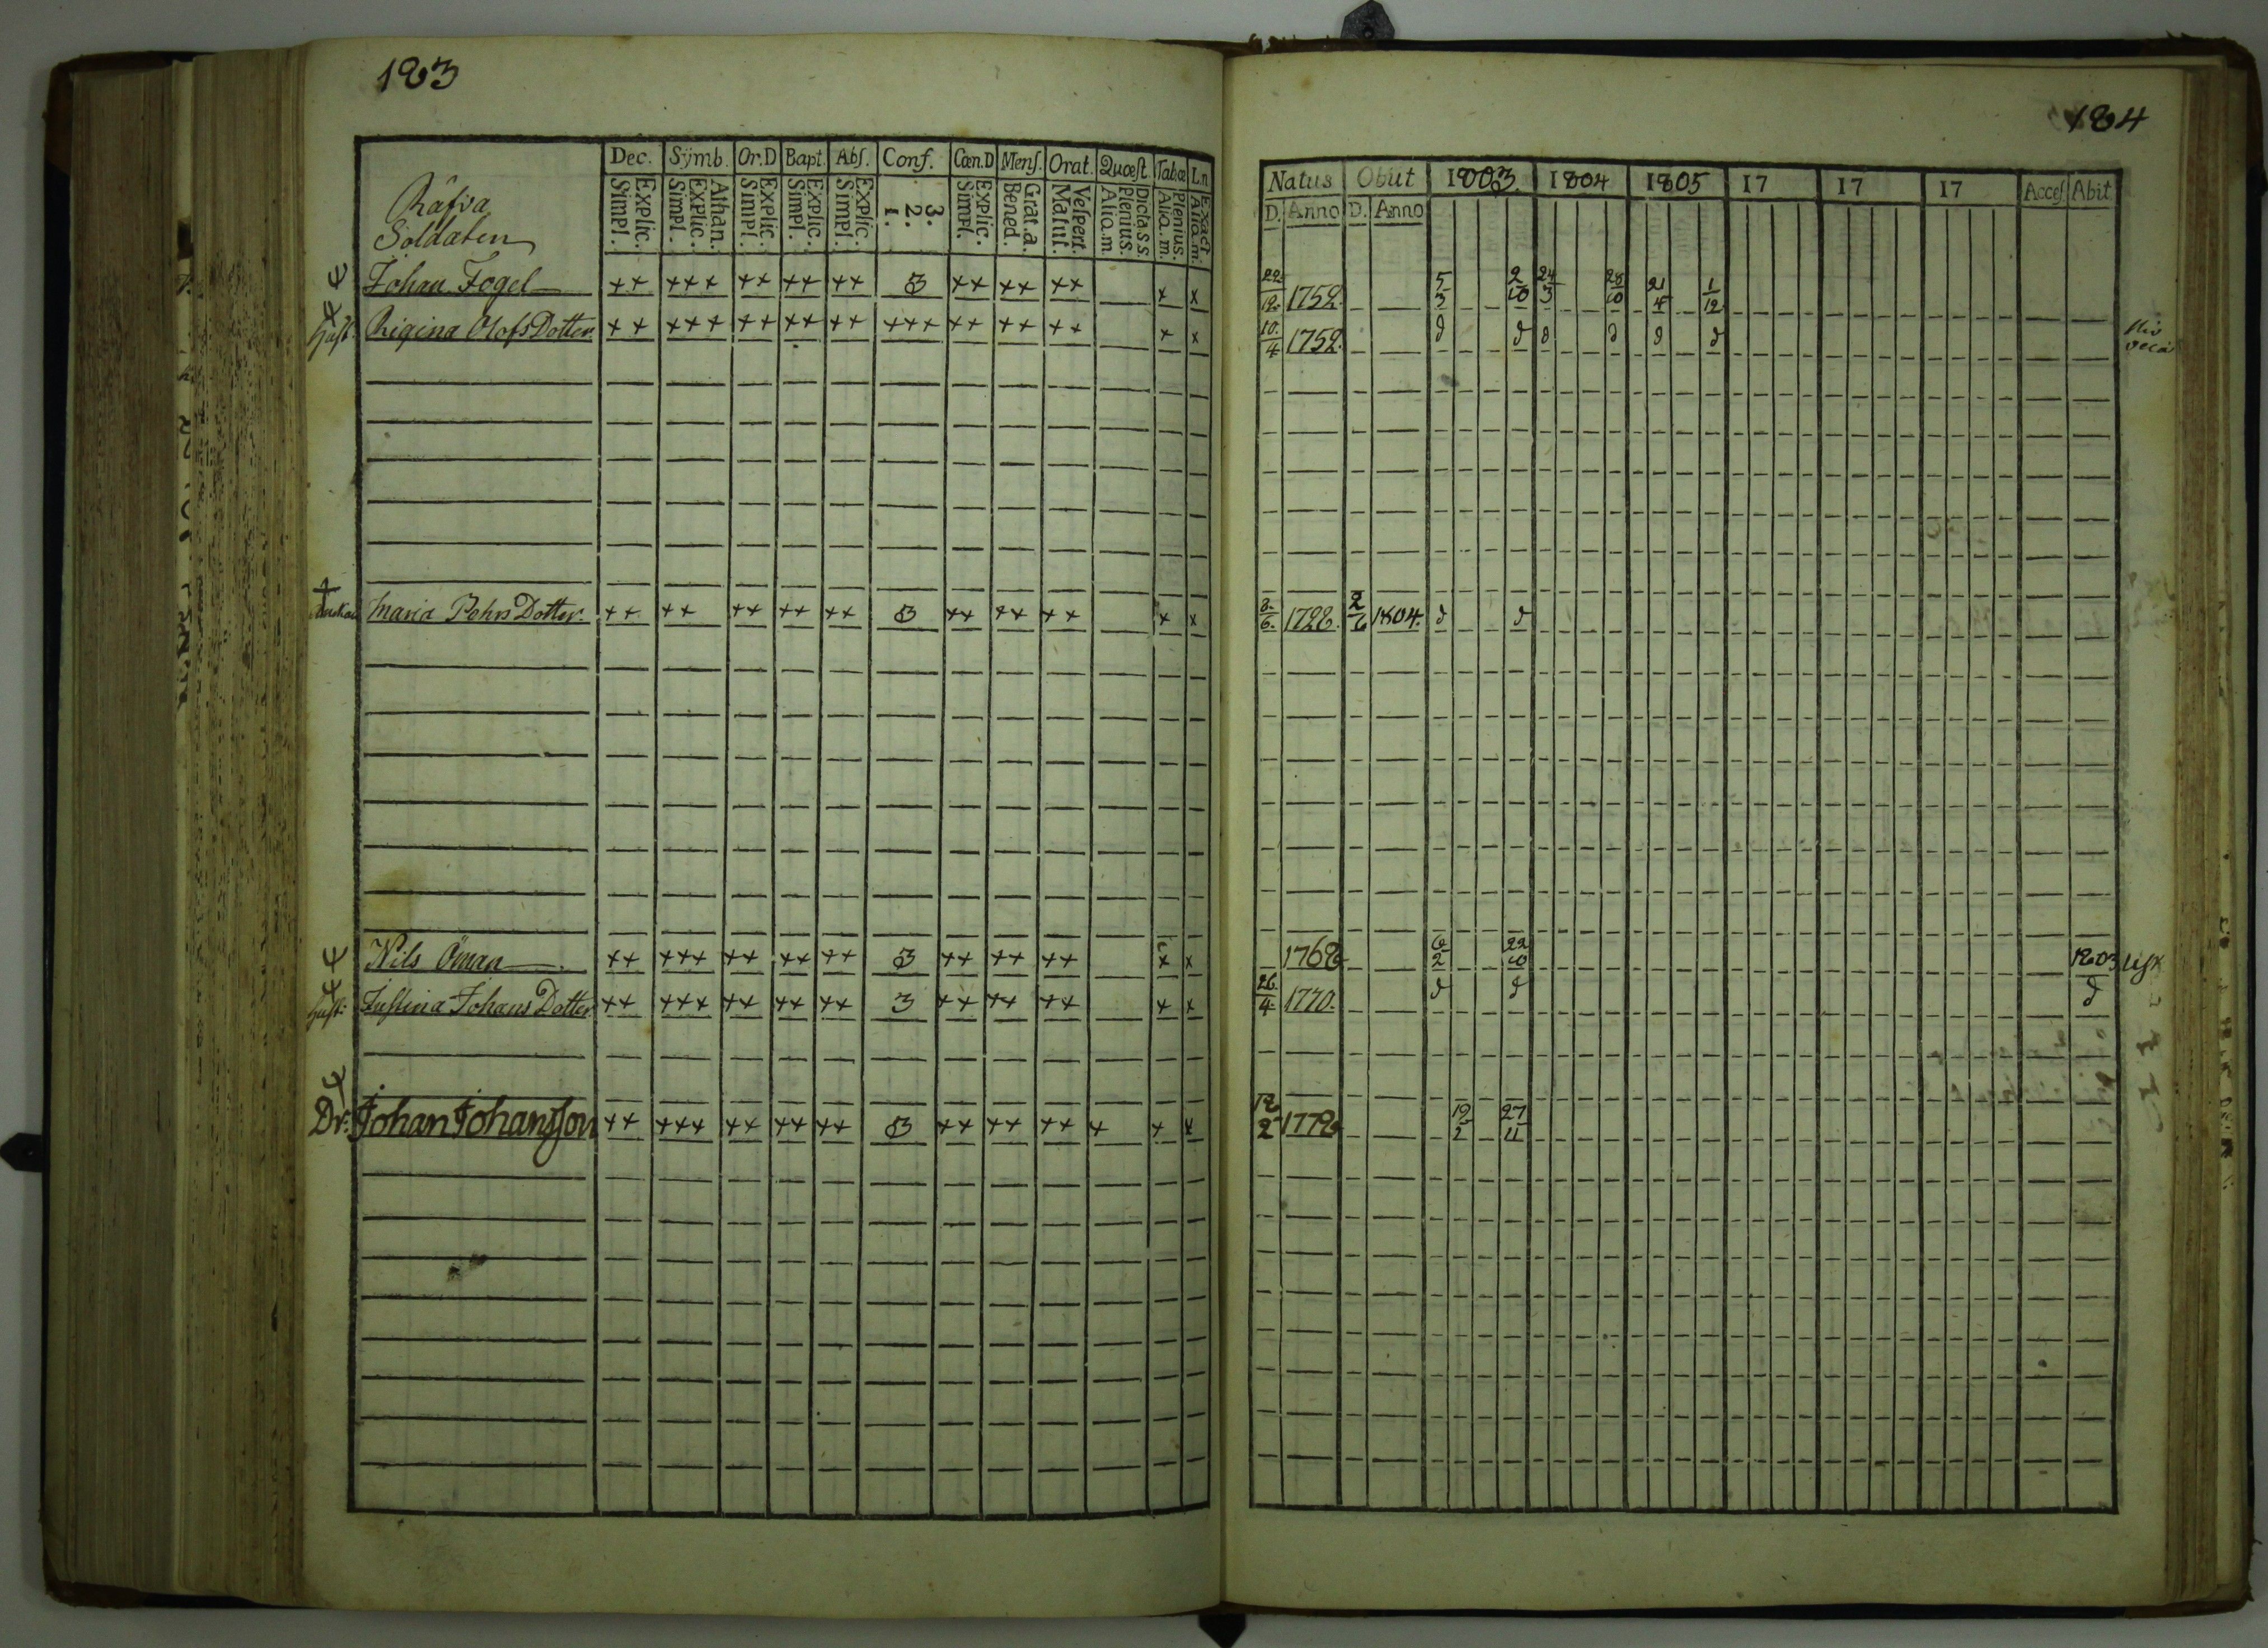 183
Dec. Sÿmb. Or.D Bapt. Abſ. Conf. Cœn.D Menſ. Orat. Quœſt Tabœ L.n
Explic. Simpl. Athan. Explic. Simpl. Explic. Simpl. Explic. Simpl. Explic. Simpl. 3. 2. 1. Explic. Simpl. Grat.a. Bened. Veſpert. Matut. Dictass Plenius. Aliq.m Plenius. Aliq.m. Exact Aliq.m.
Råfva
Soldaten
Johan Fogel ++ +++ ++ ++ ++ 3 ++ ++ ++ x x
Hust. Regina Olofs Dotter ++ +++ ++ ++ ++ +++ ++ ++ ++ + x
Maria Pehrs Dotter. ++ ++ ++ ++ ++ 3 ++ ++ ++ x x
Nils Öman ++ +++ ++ ++ ++ 3 ++ ++ ++ x x
Hust: Justina Johans Dotter ++ +++ ++ ++ ++ 3 ++ ++ ++ x x
Dr: Johan Johansson ++ +++ ++ ++ ++ 3 ++ ++ ++ + + x
184
Natus Obiit 1803. 1804 1805 17 17 17 Acceſ Abit
D. Anno D. Anno
22/12 1752. 5/3 2/10 24/3 28/10 21/4 1/12
10/4 1752. d d d d d d
3/6 1728. 2/6 1804. d d
1768 6/2 22/10 1803
26/4 1770. d d d
18/2 1778 19/2 27/11